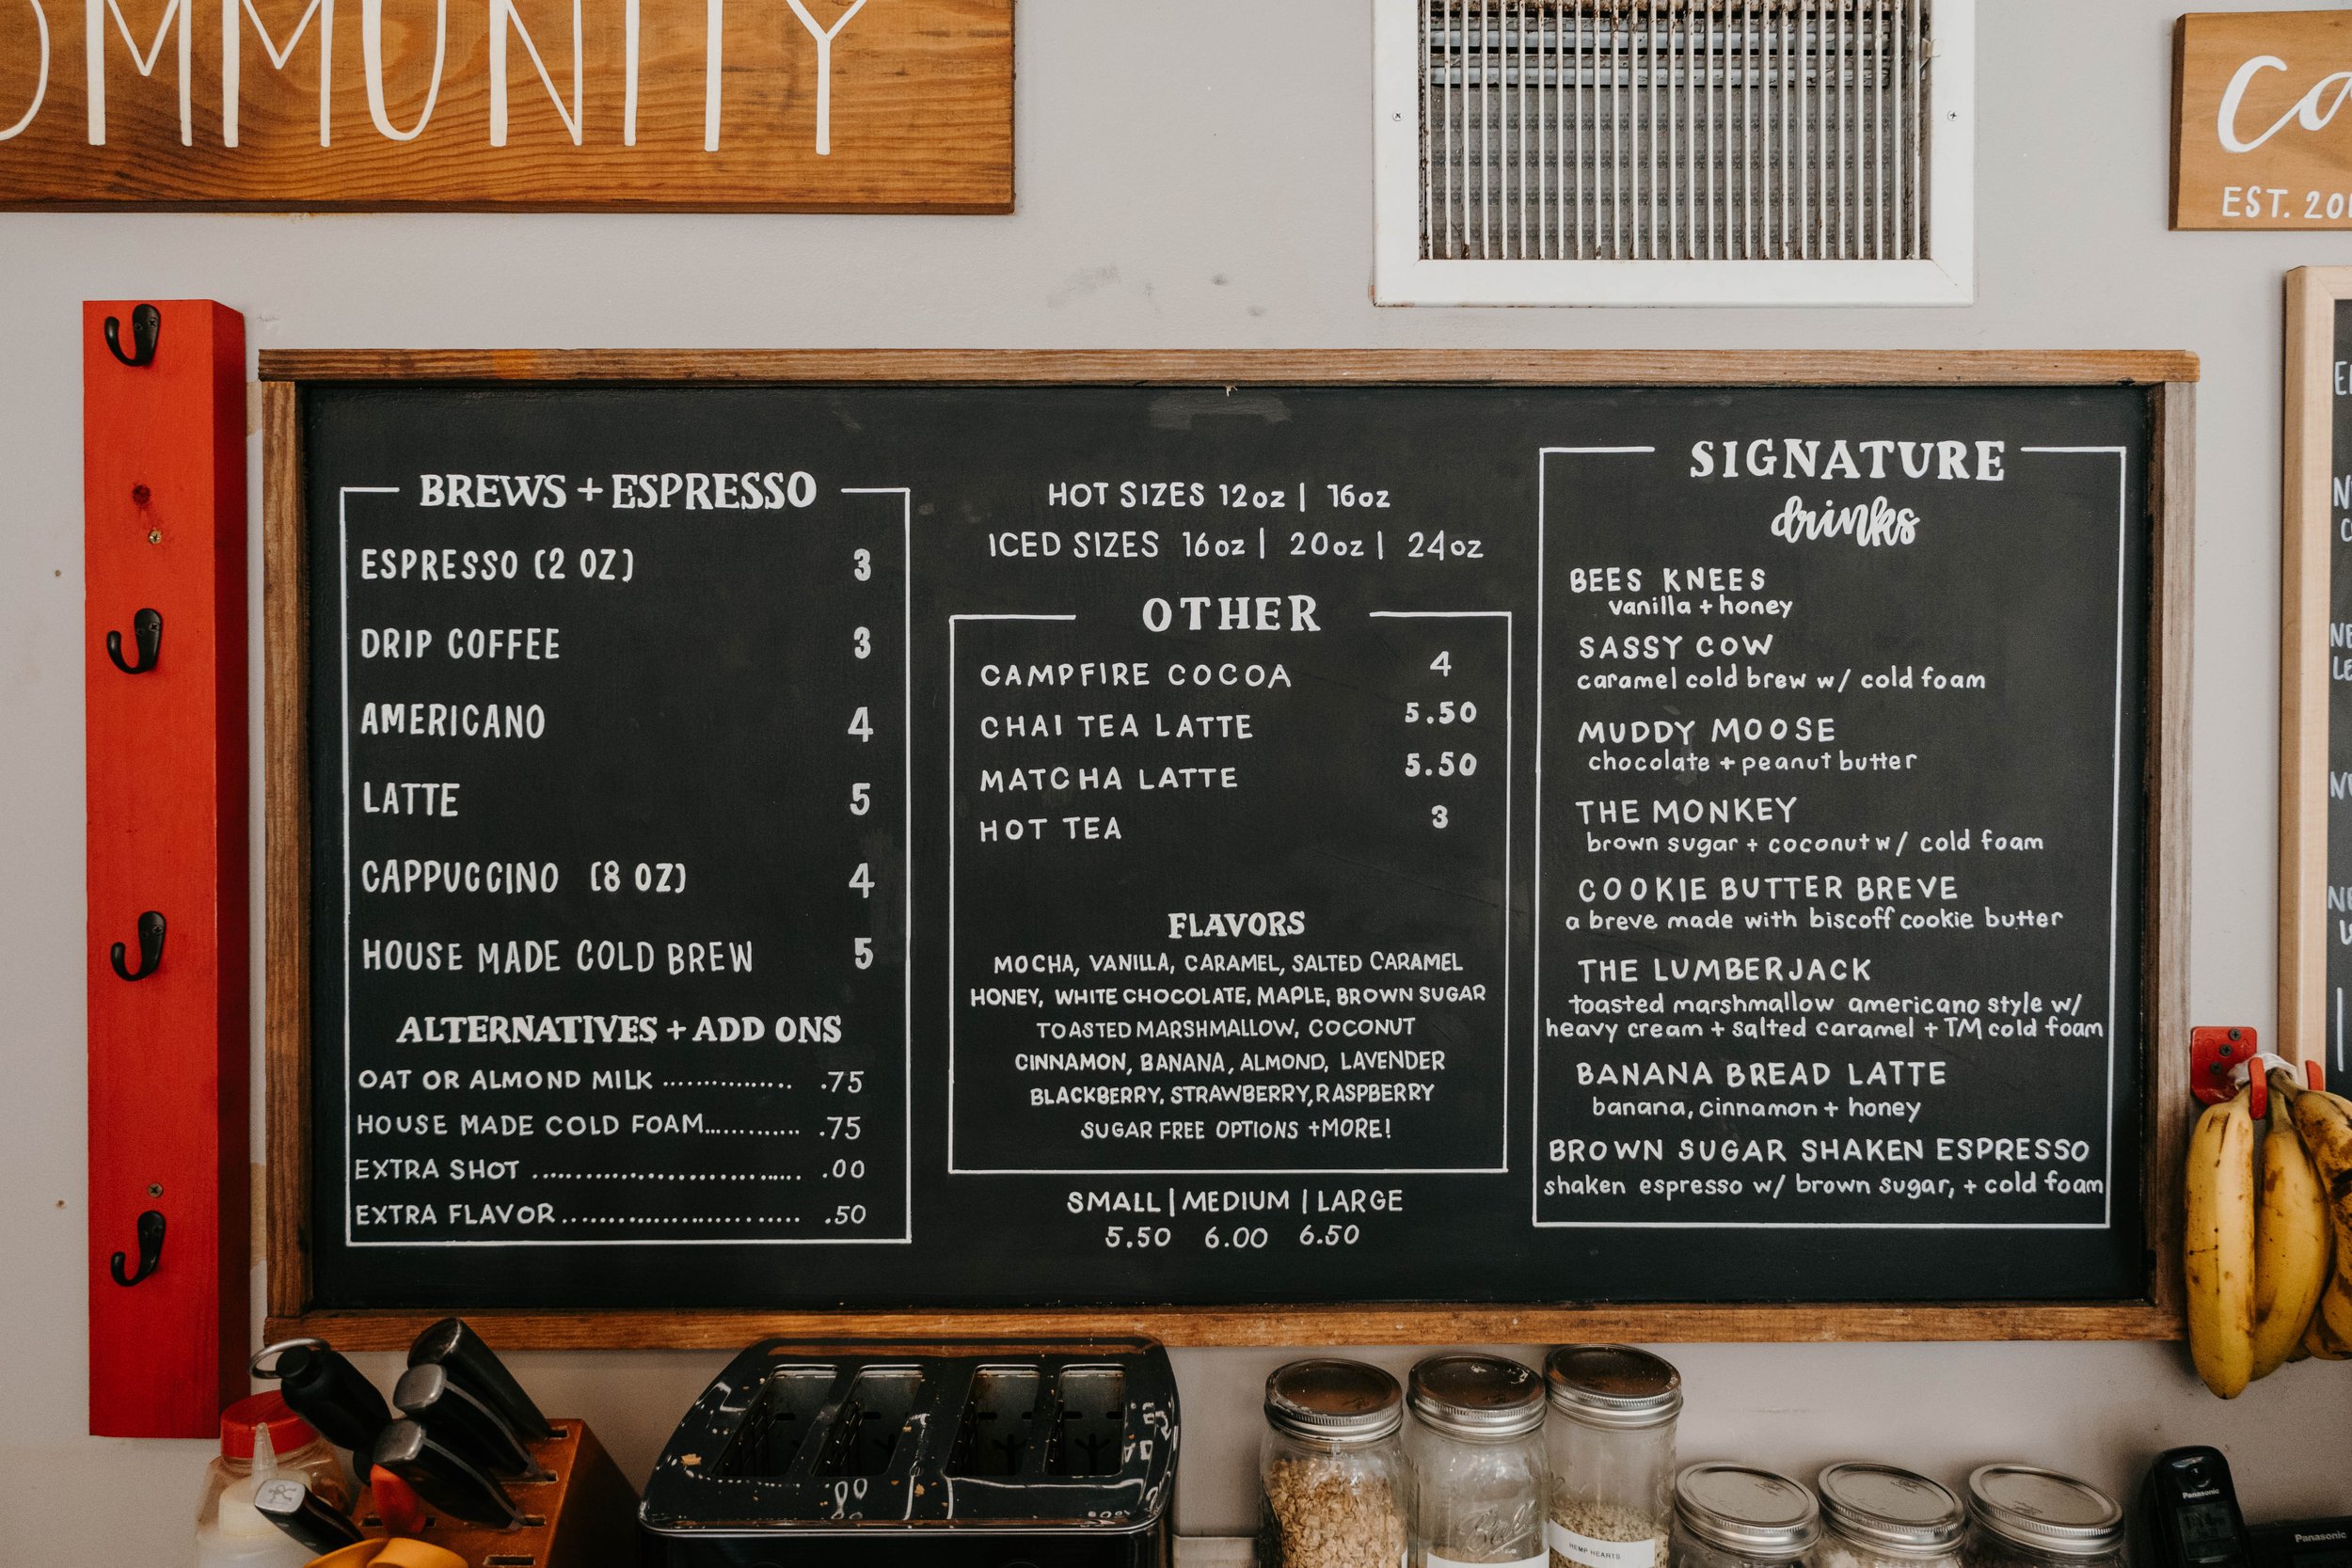 OMMUNITY
EST. 20
BREWS + ESPRESSO
ESPRESSO (2 OZ) 3
DRIP COFFEE 3
AMERICANO 4
LATTE 5
CAPPUCCINO (8 OZ) 4
HOUSE MADE COLD BREW 5
ALTERNATIVES + ADD ONS
OAT OR ALMOND MILK ............... .75
HOUSE MADE COLD FOAM............ .75
EXTRA SHOT .............................. .00
EXTRA FLAVOR........................... .50
HOT SIZES 12oz | 16oz
ICED SIZES 16oz | 20oz | 24oz
OTHER
CAMPFIRE COCOA 4
CHAI TEA LATTE 5.50
MATCHA LATTE 5.50
HOT TEA 3
FLAVORS
MOCHA, VANILLA, CARAMEL, SALTED CARAMEL
HONEY, WHITE CHOCOLATE, MAPLE, BROWN SUGAR
TOASTED MARSHMALLOW, COCONUT
CINNAMON, BANANA, ALMOND, LAVENDER
BLACKBERRY, STRAWBERRY, RASPBERRY
SUGAR FREE OPTIONS +MORE!
SMALL | MEDIUM | LARGE
5.50 6.00 6.50
SIGNATURE
drinks
BEES KNEES
vanilla + honey
SASSY COW
caramel cold brew w/ cold foam
MUDDY MOOSE
chocolate + peanut butter
THE MONKEY
brown sugar + coconut w/ cold foam
COOKIE BUTTER BREVE
a breve made with biscoff cookie butter
THE LUMBERJACK
toasted marshmallow americano style w/
heavy cream + salted caramel + TM cold foam
BANANA BREAD LATTE
banana, cinnamon + honey
BROWN SUGAR SHAKEN ESPRESSO
shaken espresso w/ brown sugar, + cold foam
HEMP HEARTS
Panasonic
Panasonic